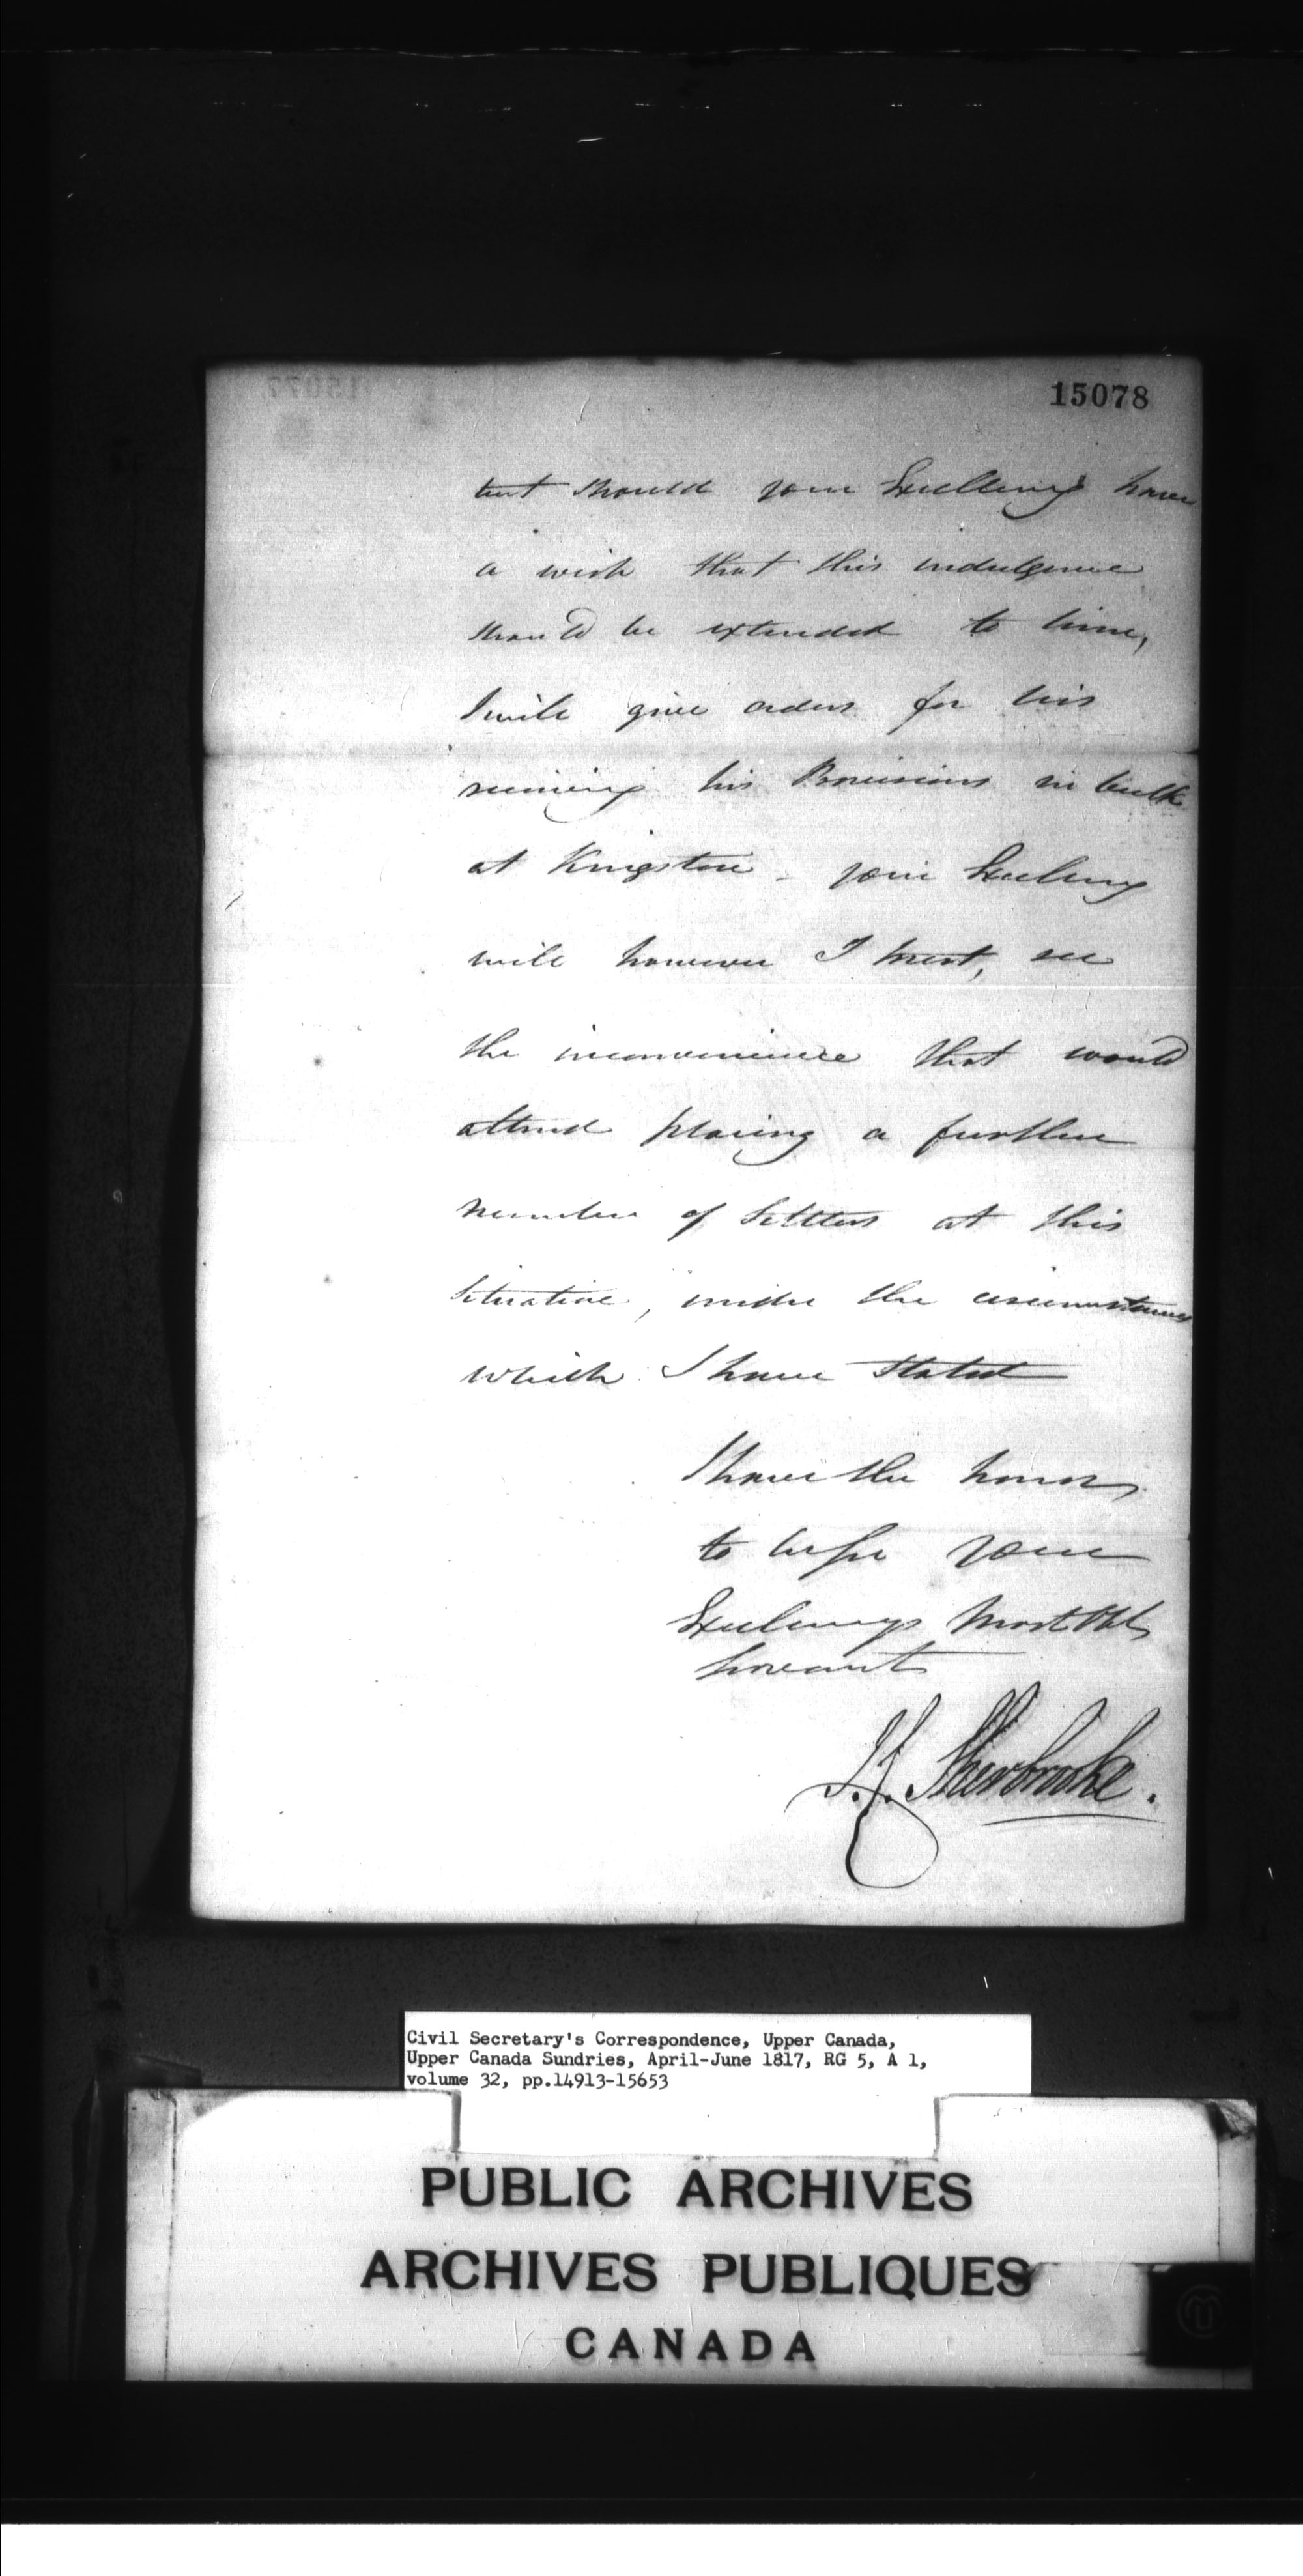 15078
but should your Excellency have
a wish that this indulgence
should be extended to him,
I will give orders for his
receiving his Provisions in bulk
at Kingston – your Excellency
will however I trust, see
the inconvenience that would
attend placing a further
number of Settlers at this
Situation, under the circumstances
which I have stated
I have the honor
to be, Sir, your
Excellencys Most Obt
Servant
J.C. Sherbrooke.
Civil Secretary's Correspondence, Upper Canada,
Upper Canada Sundries, April-June 1817, RG 5, A 1,
volume 32, pp.14913-15653
PUBLIC ARCHIVES
ARCHIVES PUBLIQUES
CANADA